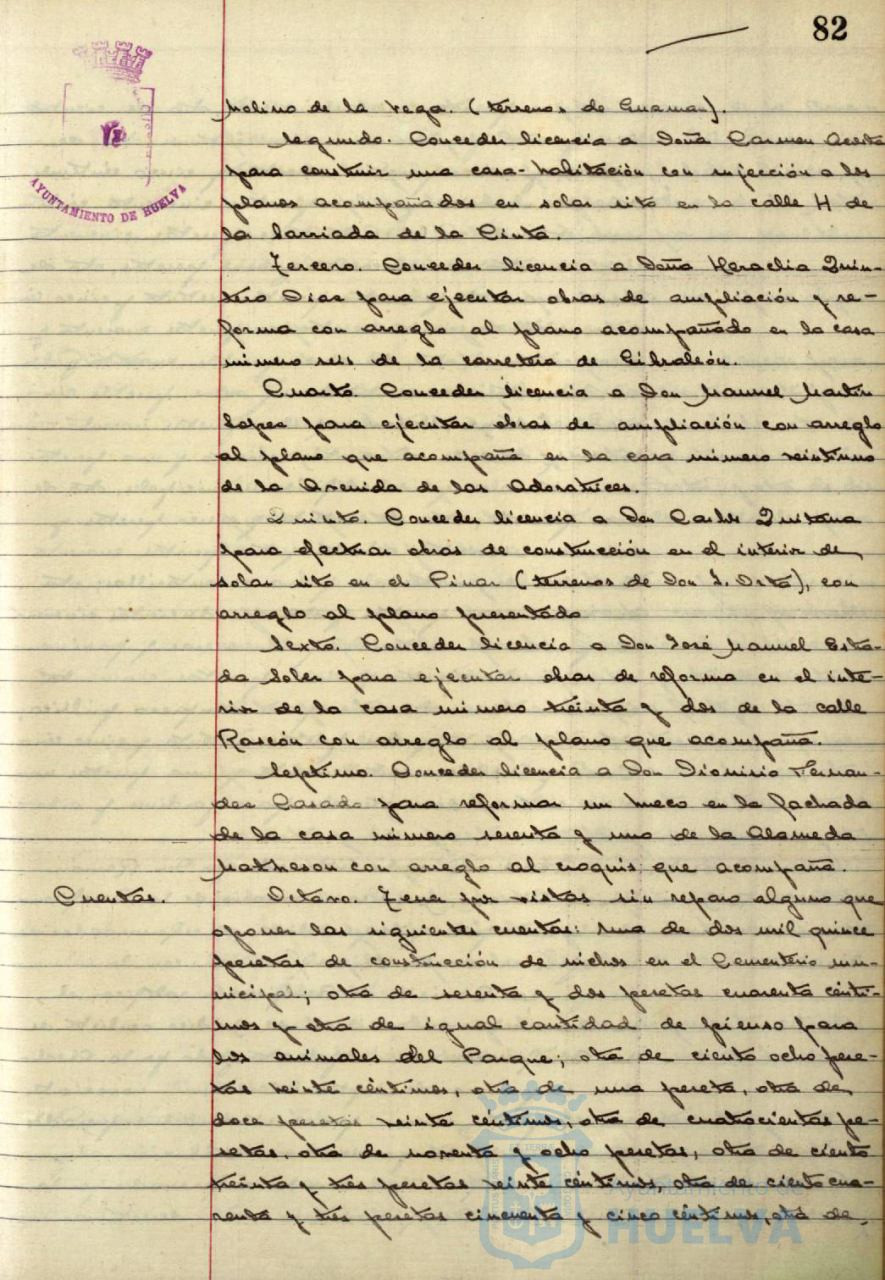 82
AYUNTAMIENTO DE HUELVA
Molino de la Vega. (terrenos de Guaman).
Segundo. Conceder licencia a Doña Carmen Acosta
para construir una casa-habitación con sujección a los
planos acompañados en solar sito en la calle H de
la barriada de la Cinta.
Tercero. Conceder licencia a Doña Heraclia Quin-
tero Diaz para ejecutar obras de ampliación y re-
forma con arreglo al plano acompañado en la casa
número seis de la carretera de Gibraleón.
Cuarto. Conceder licencia a Don Manuel Martín
Lopez para ejecutar obras de ampliación con arreglo
al plano que acompaña en la casa número veintiuno
de la Avenida de las Adoratrices.
Quinto. Conceder licencia a Don Carlos Quintana
para efectuar obras de construcción en el interior de
solar sito en el Pinar (terrenos de Don J. Orta), con
arreglo al plano presentado
Sexto. Conceder licencia a Don José Manuel Estra-
da Soler para ejecutar obras de reforma en el inte-
rior de la casa número treinta y dos de la calle
Rascón con arreglo al plano que acompaña.
Septimo. Conceder licencia a Don Dionisio Fernan-
dez Casado para reformar un hueco en la fachada
de la casa número sesenta y uno de la Alameda
Matheson con arreglo al croquis que acompaña.
Cuentas.
Octavo. Tener por vistas sin reparo alguno que
oponer las siguientes cuentas: una de dos mil quince
pesetas de construcción de nichos en el Cementerio mu-
nicipal; otra de sesenta y dos pesetas cuarenta cénti-
mos y otra de igual cantidad de pienso para
los animales del Parque; otra de ciento ocho pese-
tas veinte céntimos, otra de una peseta, otra de
doce pesetas veinte céntimos, otra de cuatrocientas pe-
setas, otra de noventa y ocho pesetas, otra de ciento
treinta y tres pesetas veinte céntimos, otra de ciento cua-
renta y tres pesetas cincuenta y cinco céntimos, otra de
Ayuntamiento de
HUELVA